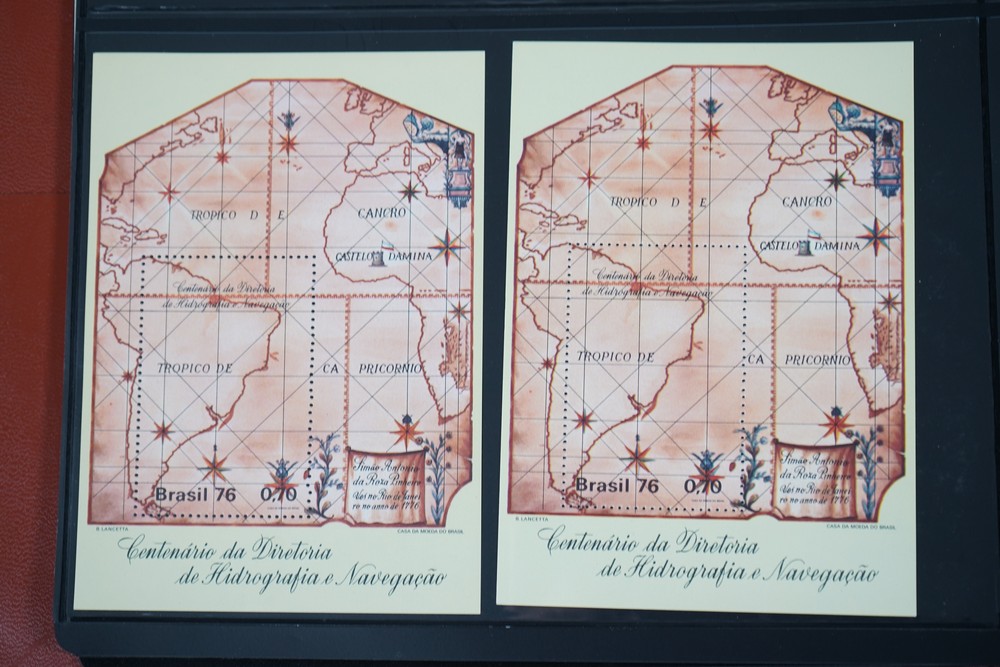 TROPICO D E
CANCRO
CASTELO DAMINA
Centenário da Diretoria
de Hidrografia e Navegação
TROPICO DE CA PRICORNIO
Simão Antonio
da Roza Pinheiro
Vas no Rio de Janei
ro no anno de 1776
Brasil 76 0,70
B. LANCETTA
CASA DA MOEDA DO BRASIL
Centenário da Diretoria
de Hidrografia e Navegação
TROPICO D E
CANCRO
CASTELO DAMINA
Centenário da Diretoria
de Hidrografia e Navegação
TROPICO DE CA PRICORNIO
Simão Antonio
da Roza Pinheiro
Vas no Rio de Janei
ro no anno de 1776
Brasil 76 0,70
B. LANCETTA
CASA DA MOEDA DO BRASIL
Centenário da Diretoria
de Hidrografia e Navegação